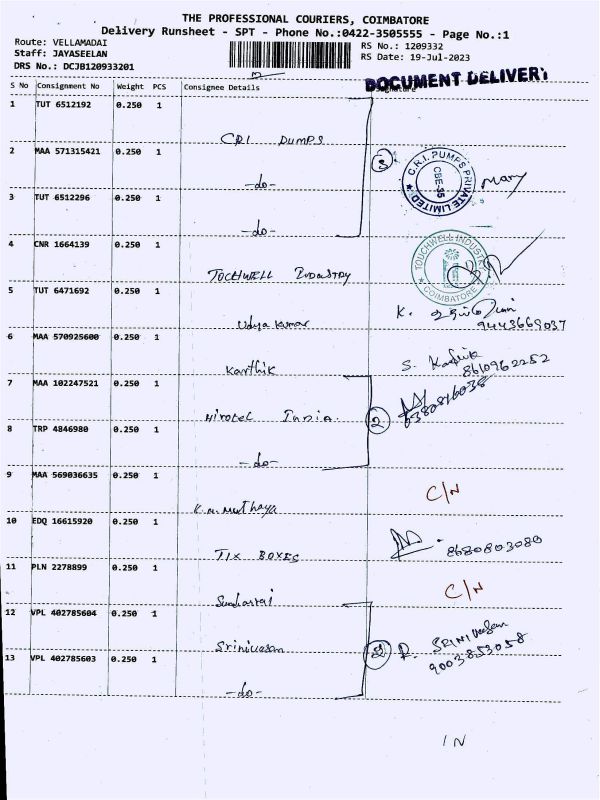 THE PROFESSIONAL COURIERS, COIMBATORE
Delivery Runsheet - SPT - Phone No.:0422-3505555 - Page No.:1
Route: VELLAMADAI
Staff: JAYASEELAN
DRS No.: DCJB120933201
RS No.: 1209332
RS Date: 19-Jul-2023
DOCUMENT DELIVERY
S No Consignment No Weight PCS Consignee Details
1 TUT 6512192 0.250 1
CRI PUMPS
2 MAA 571315421 0.250 1
-do-
3
C.R.I. PUMPS PRIVATE LIMITED
CBE-35
Mary
3 TUT 6512296 0.250 1
-do-
4 CNR 1664139 0.250 1
TOCHWELL INDUSTRY
TOUCHWELL INDUSTRY
COIMBATORE
5 TUT 6471692 0.250 1
Udya kumar
K.
9443669037
6 MAA 570925600 0.250 1
Karthik
S. Karthik
8610962252
7 MAA 102247521 0.250 1
India.
6380816038
8 TRP 4846980 0.250 1
-do-
2
9 MAA 569036635 0.250 1
K.m. Muthaya
C/N
10 EDQ 16615920 0.250 1
TIX BOXES
8680803080
11 PLN 2278899 0.250 1
C/N
12 VPL 402785604 0.250 1
Srinivasan
2
R. SRINIVASAN
9003853058
13 VPL 402785603 0.250 1
-do-
IN